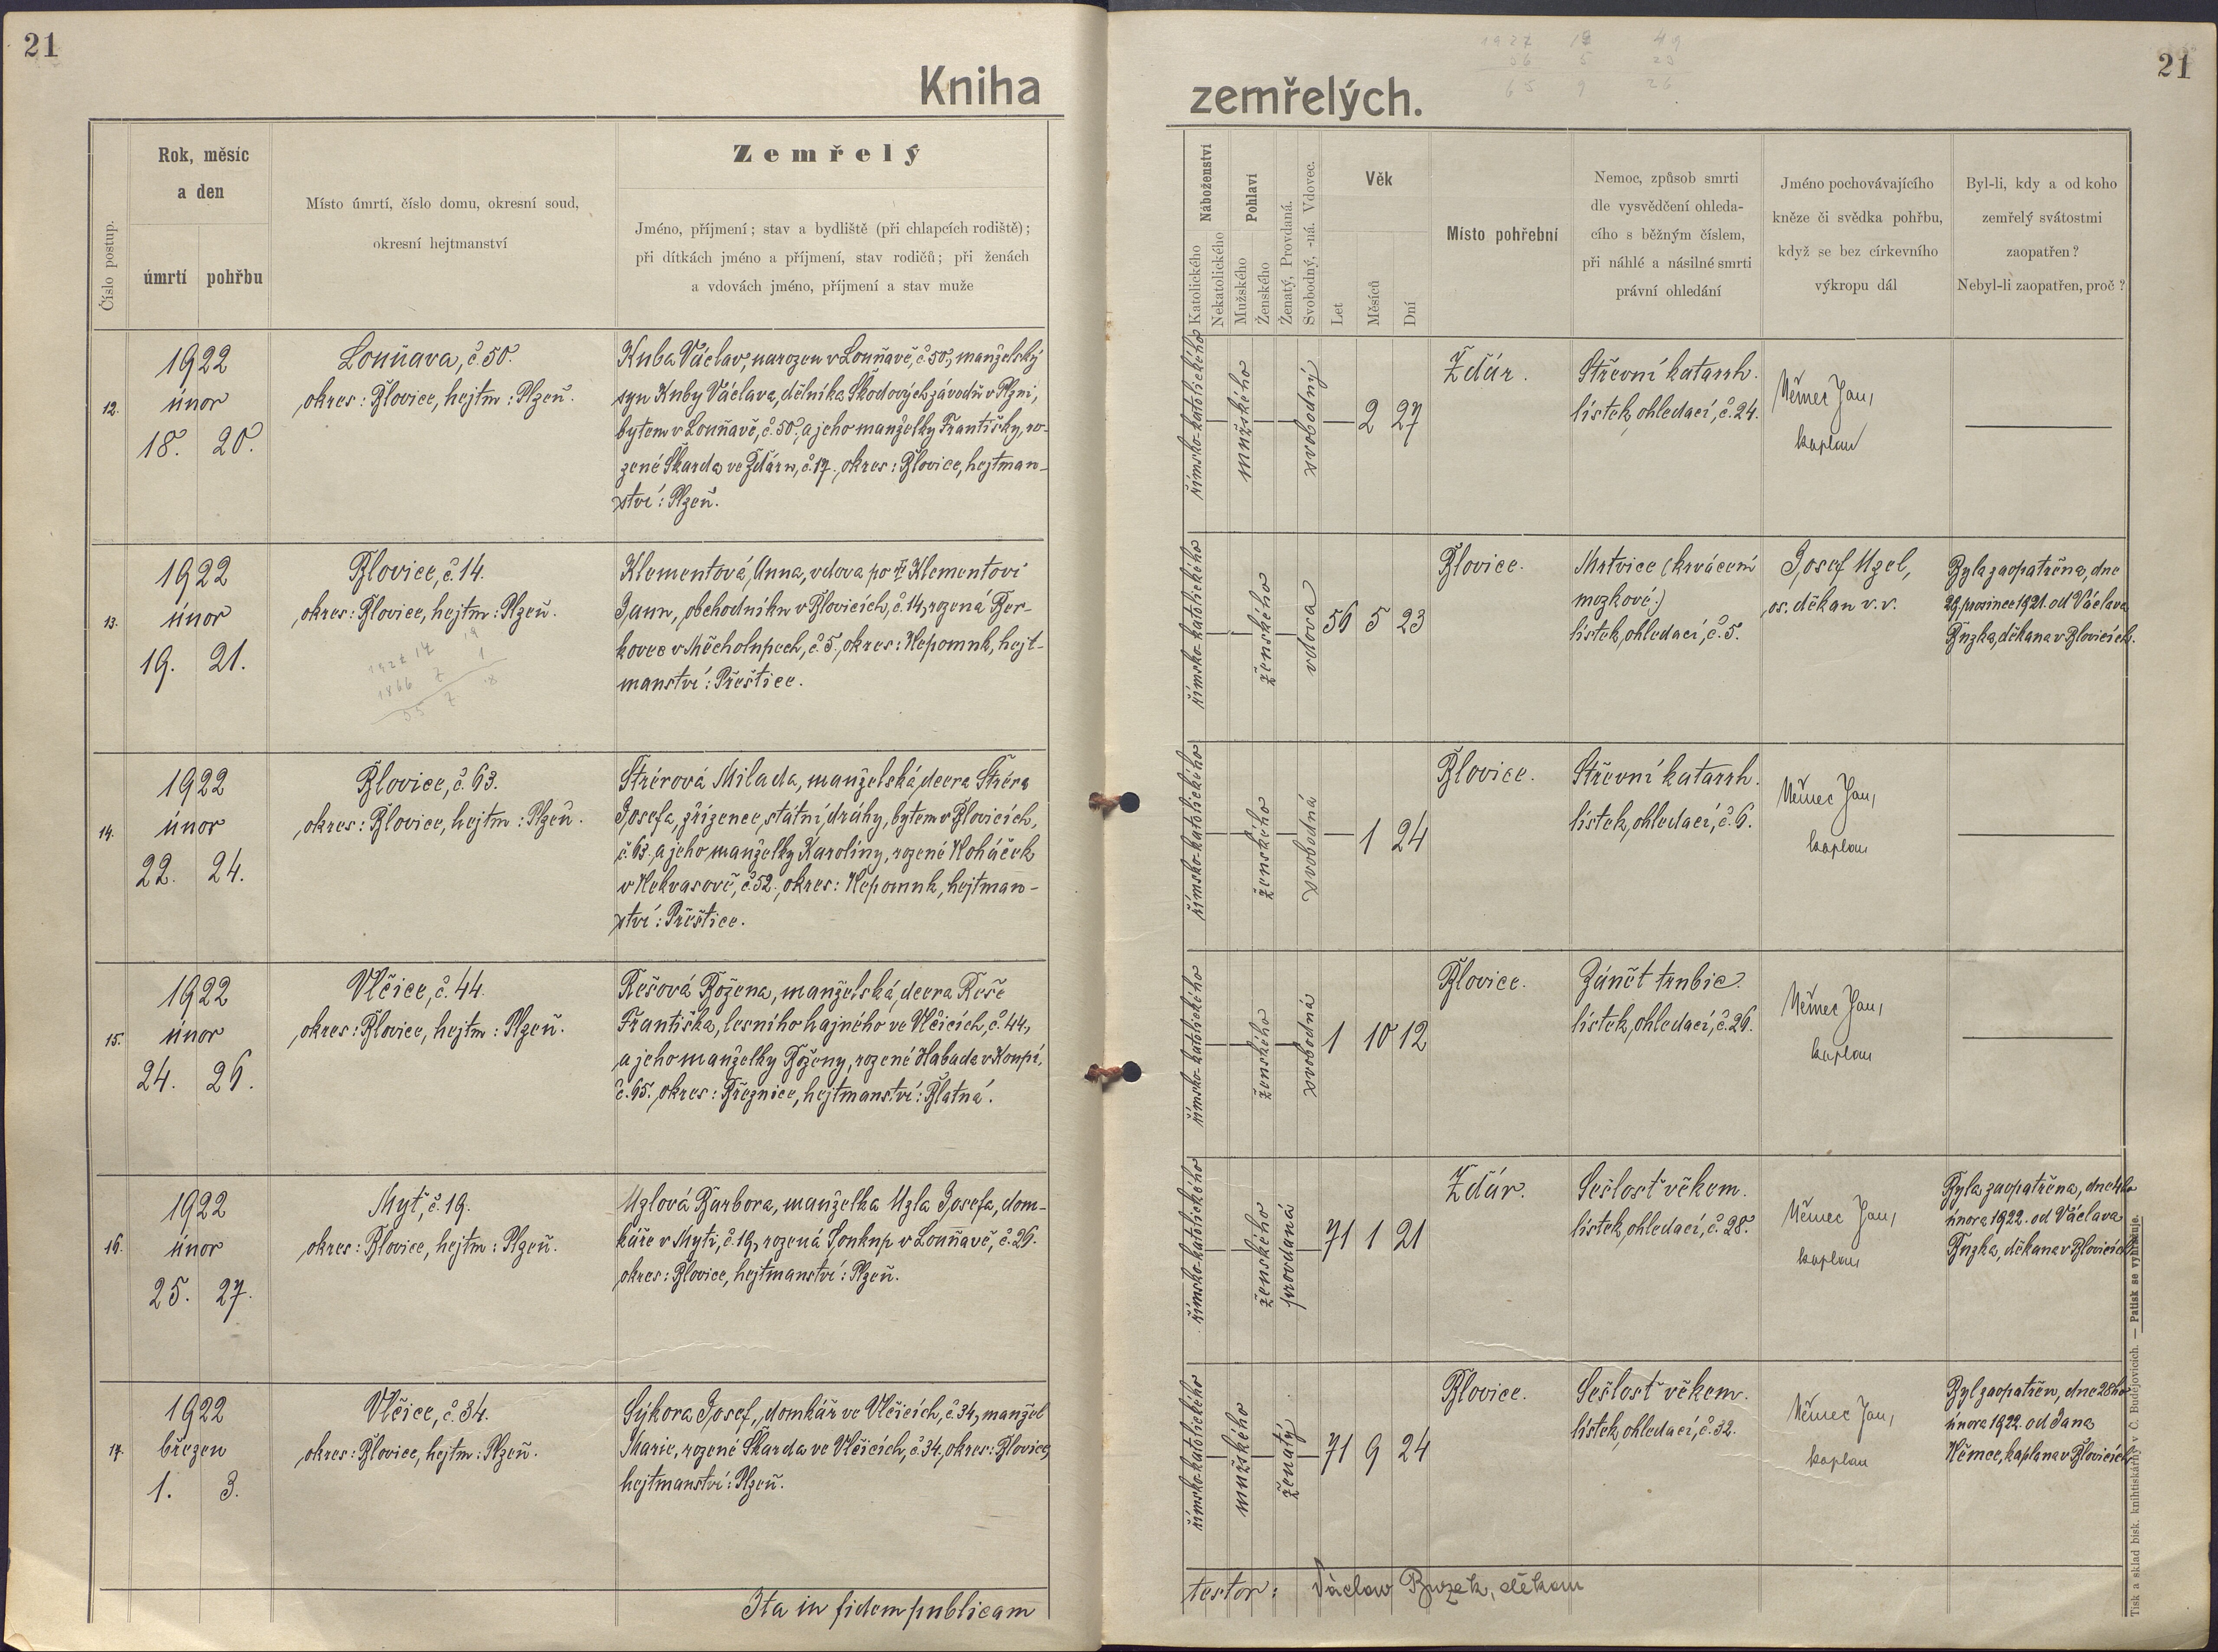 21
Kniha
Číslo postup.
Rok, měsíc
a den
úmrtí
pohřbu
Místo úmrtí, číslo domu, okresní soud,
okresní hejtmanství
Zemřelý
Jméno, příjmení; stav a bydliště (při chlapcích rodiště);
při dítkách jméno a příjmení, stav rodičů; při ženách
a vdovách jméno, příjmení a stav muže
12.
1922
únor
18. 20.
Louňava, č 50.
okres: Blovice, hejtm: Plzeň.
Kuba Václav, narozen v Louňavě, č 50, manželský
syn Kuby Václava, dělníka Škodových závodů v Plzni,
bytem v Louňavě, č. 50, a jeho manželky Františky, ro-
zené Škarda ve Ždáru, č. 17., okres: Blovice, hejtman-
ství: Plzeň.
13.
1922
únor
19. 21.
Blovice, č. 14.
okres: Blovice, hejtm: Plzeň.
Klementová Anna, vdova po † Klementovi
Janu, obchodníku v Blovicích, č. 14, rozená Ber-
kovec v Měcholupech, č 5., okres: Nepomuk, hejt-
manství: Přeštice.
14.
1922
únor
22. 24.
Blovice, č. 63.
okres: Blovice, hejtm: Plzeň.
Štrérová Milada, manželská dcera Štréra
Josefa, zřízence státní dráhy, bytem v Blovicích,
č. 63. a jeho manželky Karoliny, rozené Koháček
v Nekvasově, č 52., okres: Nepomuk, hejtman-
ství: Přeštice.
15.
1922
únor
24. 26.
Vlčice, č. 44.
okres: Blovice, hejtm: Plzeň.
Rešová Božena, manželská dcera Reše
Františka, lesního hajného ve Vlčicích, č. 44,
a jeho manželky Boženy, rozené Habada v Koupi,
č. 65. okres: Březnice, hejtmanství: Blatná.
16.
1922
únor
25. 27.
Myť, č. 19.
okres: Blovice, hejtm: Plzeň.
Uzlová Barbora, manželka Uzla Josefa, dom-
káře v Myti, č. 19, rozená Soukup v Louňavě, č. 26.
okres: Blovice, hejtmanství: Plzeň.
17.
1922
březen
1. 3.
Vlčice, č. 34.
okres: Blovice, hejtm: Plzeň.
Sýkora Josef, domkář ve Vlčicích, č. 34, manžel
Marie, rozené Škarda ve Vlčicích, č. 34, okres: Blovice,
hejtmanství: Plzeň.
Ita in fidem publicam
21
zemřelých.
Náboženství
Katolického
Nekatolického
Pohlaví
Mužského
Ženského
Ženatý, Provdaná.
Svobodný, -ná. Vdovec.
Věk
Let
Měsíců
Dní
Místo pohřební
Nemoc, způsob smrti
dle vysvědčení ohleda-
cího s běžným číslem,
při náhlé a násilné smrti
právní ohledání
Jméno pochovávajícího
kněze či svědka pohřbu,
když se bez církevního
výkropu dál
Byl-li, kdy a od koho
zemřelý svátostmi
zaopatřen?
Nebyl-li zaopatřen, proč?
římsko-katolického
mužského
svobodný
2 27
Ždár.
Střevní katarrh.
lístek ohledací, č. 24.
Němec Jan,
kaplan
římsko-katolického
ženského
vdova
56 5 23
Blovice.
Mrtvice (krvácení
mozkové.)
lístek ohledací, č. 5.
Josef Uzel,
os. děkan v. v.
Byla zaopatřena, dne
29. prosince 1921. od Václava
Buzka, děkana v Blovicích.
římsko-katolického
ženského
svobodná
1 24
Blovice.
Střevní katarrh.
lístek ohledací, č. 6.
Němec Jan,
kaplan
římsko-katolického
ženského
svobodná
1 10 12
Blovice.
Zánět trubic.
lístek ohledací, č. 26.
Němec Jan,
kaplan
římsko-katolického
ženského
provdaná
71 1 21
Ždár.
Sešlosť věkem.
lístek ohledací, č. 28.
Němec Jan,
kaplan
Byla zaopatřena, dne 4ho
února 1922. od Václava
Buzka, děkana v Blovicích.
římsko-katolického
mužského
ženatý
71 9 24
Blovice.
Sešlosť věkem.
lístek ohledací, č. 32.
Němec Jan,
kaplan
Byl zaopatřen, dne 28ho
února 1922. od Jana
Němce, kaplana v Blovicích.
testor: Václav Buzek, děkan
Tisk a sklad bisk. knihtiskárny v Č. Budějovicích. — Patisk se vyhražuje.